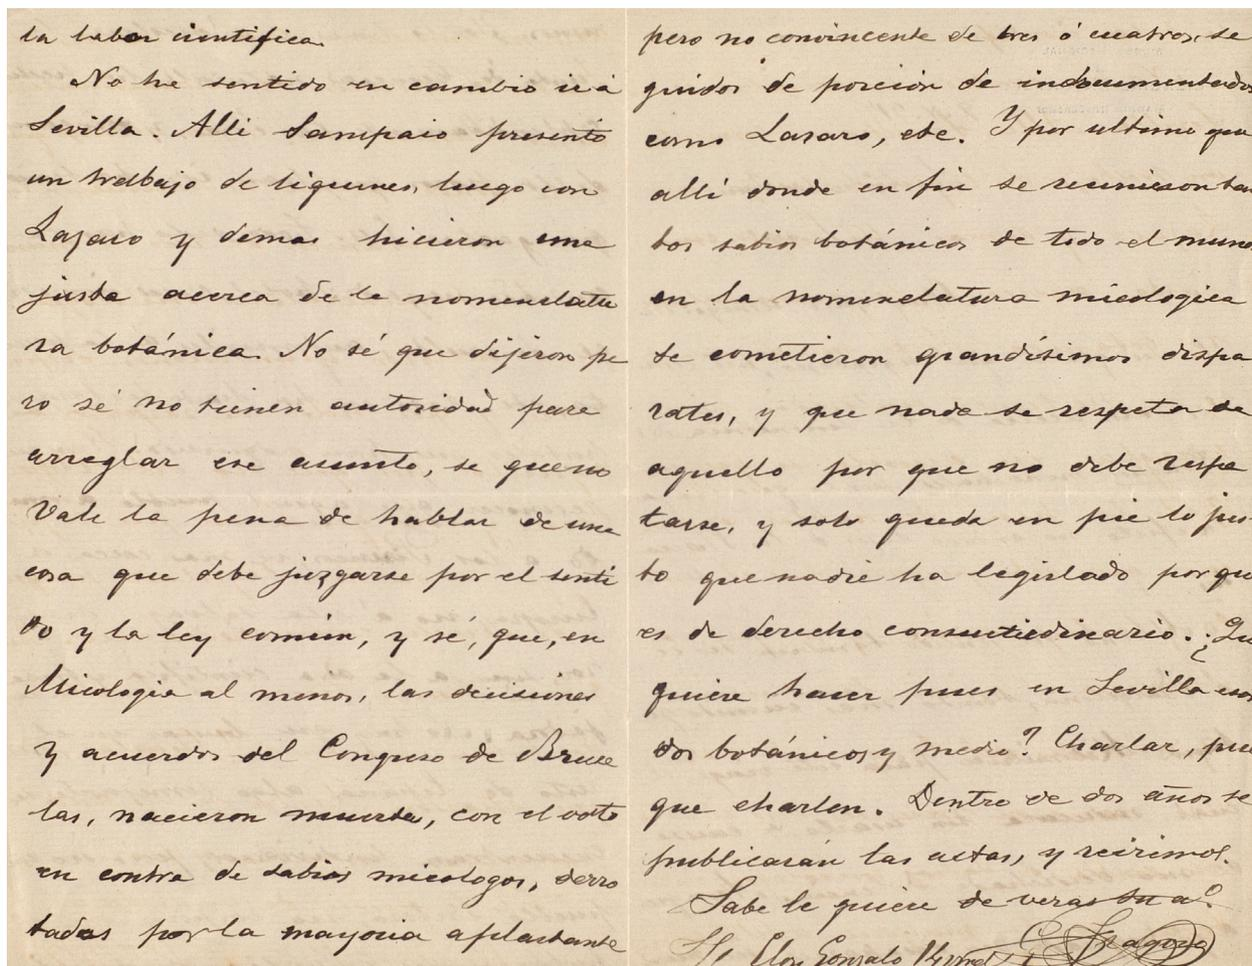 la labor cientifica.
No he sentido en cambio ir á
Sevilla. Alli Sampaio presentó
un trabajo de liquenes, luego con
Lazaro y demas hicieron una
junta acerca de la nomenclatu
ra botánica. No sé que dijeron pe
ro sé no tienen autoridad para
arreglar ese asunto, se que no
vale la pena de hablar de una
cosa que debe juzgarse por el senti
do y la ley común, y sé, que, en
Micologia al menos, las decisiones
y acuerdos del Congreso de Bruse
las, nacieron muertas, con el voto
en contra de sabios micologos, derro
tados por la mayoria aplastante
pero no convincente de tres ó cuatros, se
guidos de porción de indocumentados
como Lazaro, etc. Y por ultimo que
allí donde en fin se reunieron tan
tos sabios botánicos de todo el mundo
en la nomenclatura micologica
se cometieron grandísimos dispa
rates, y que nada se respeta de
aquello por que no debe respe
tarse, y solo queda en pie lo jus
to que nadie ha legislado porque
es de derecho consuetudinario. ¿Que
quiere hacer pues en Sevilla esos
dos botánicos y medio? Charlar, pues
que charlen. Dentro de dos años se
publicarán las actas, y reiremos.
Sabe le quiere de veras su aº.